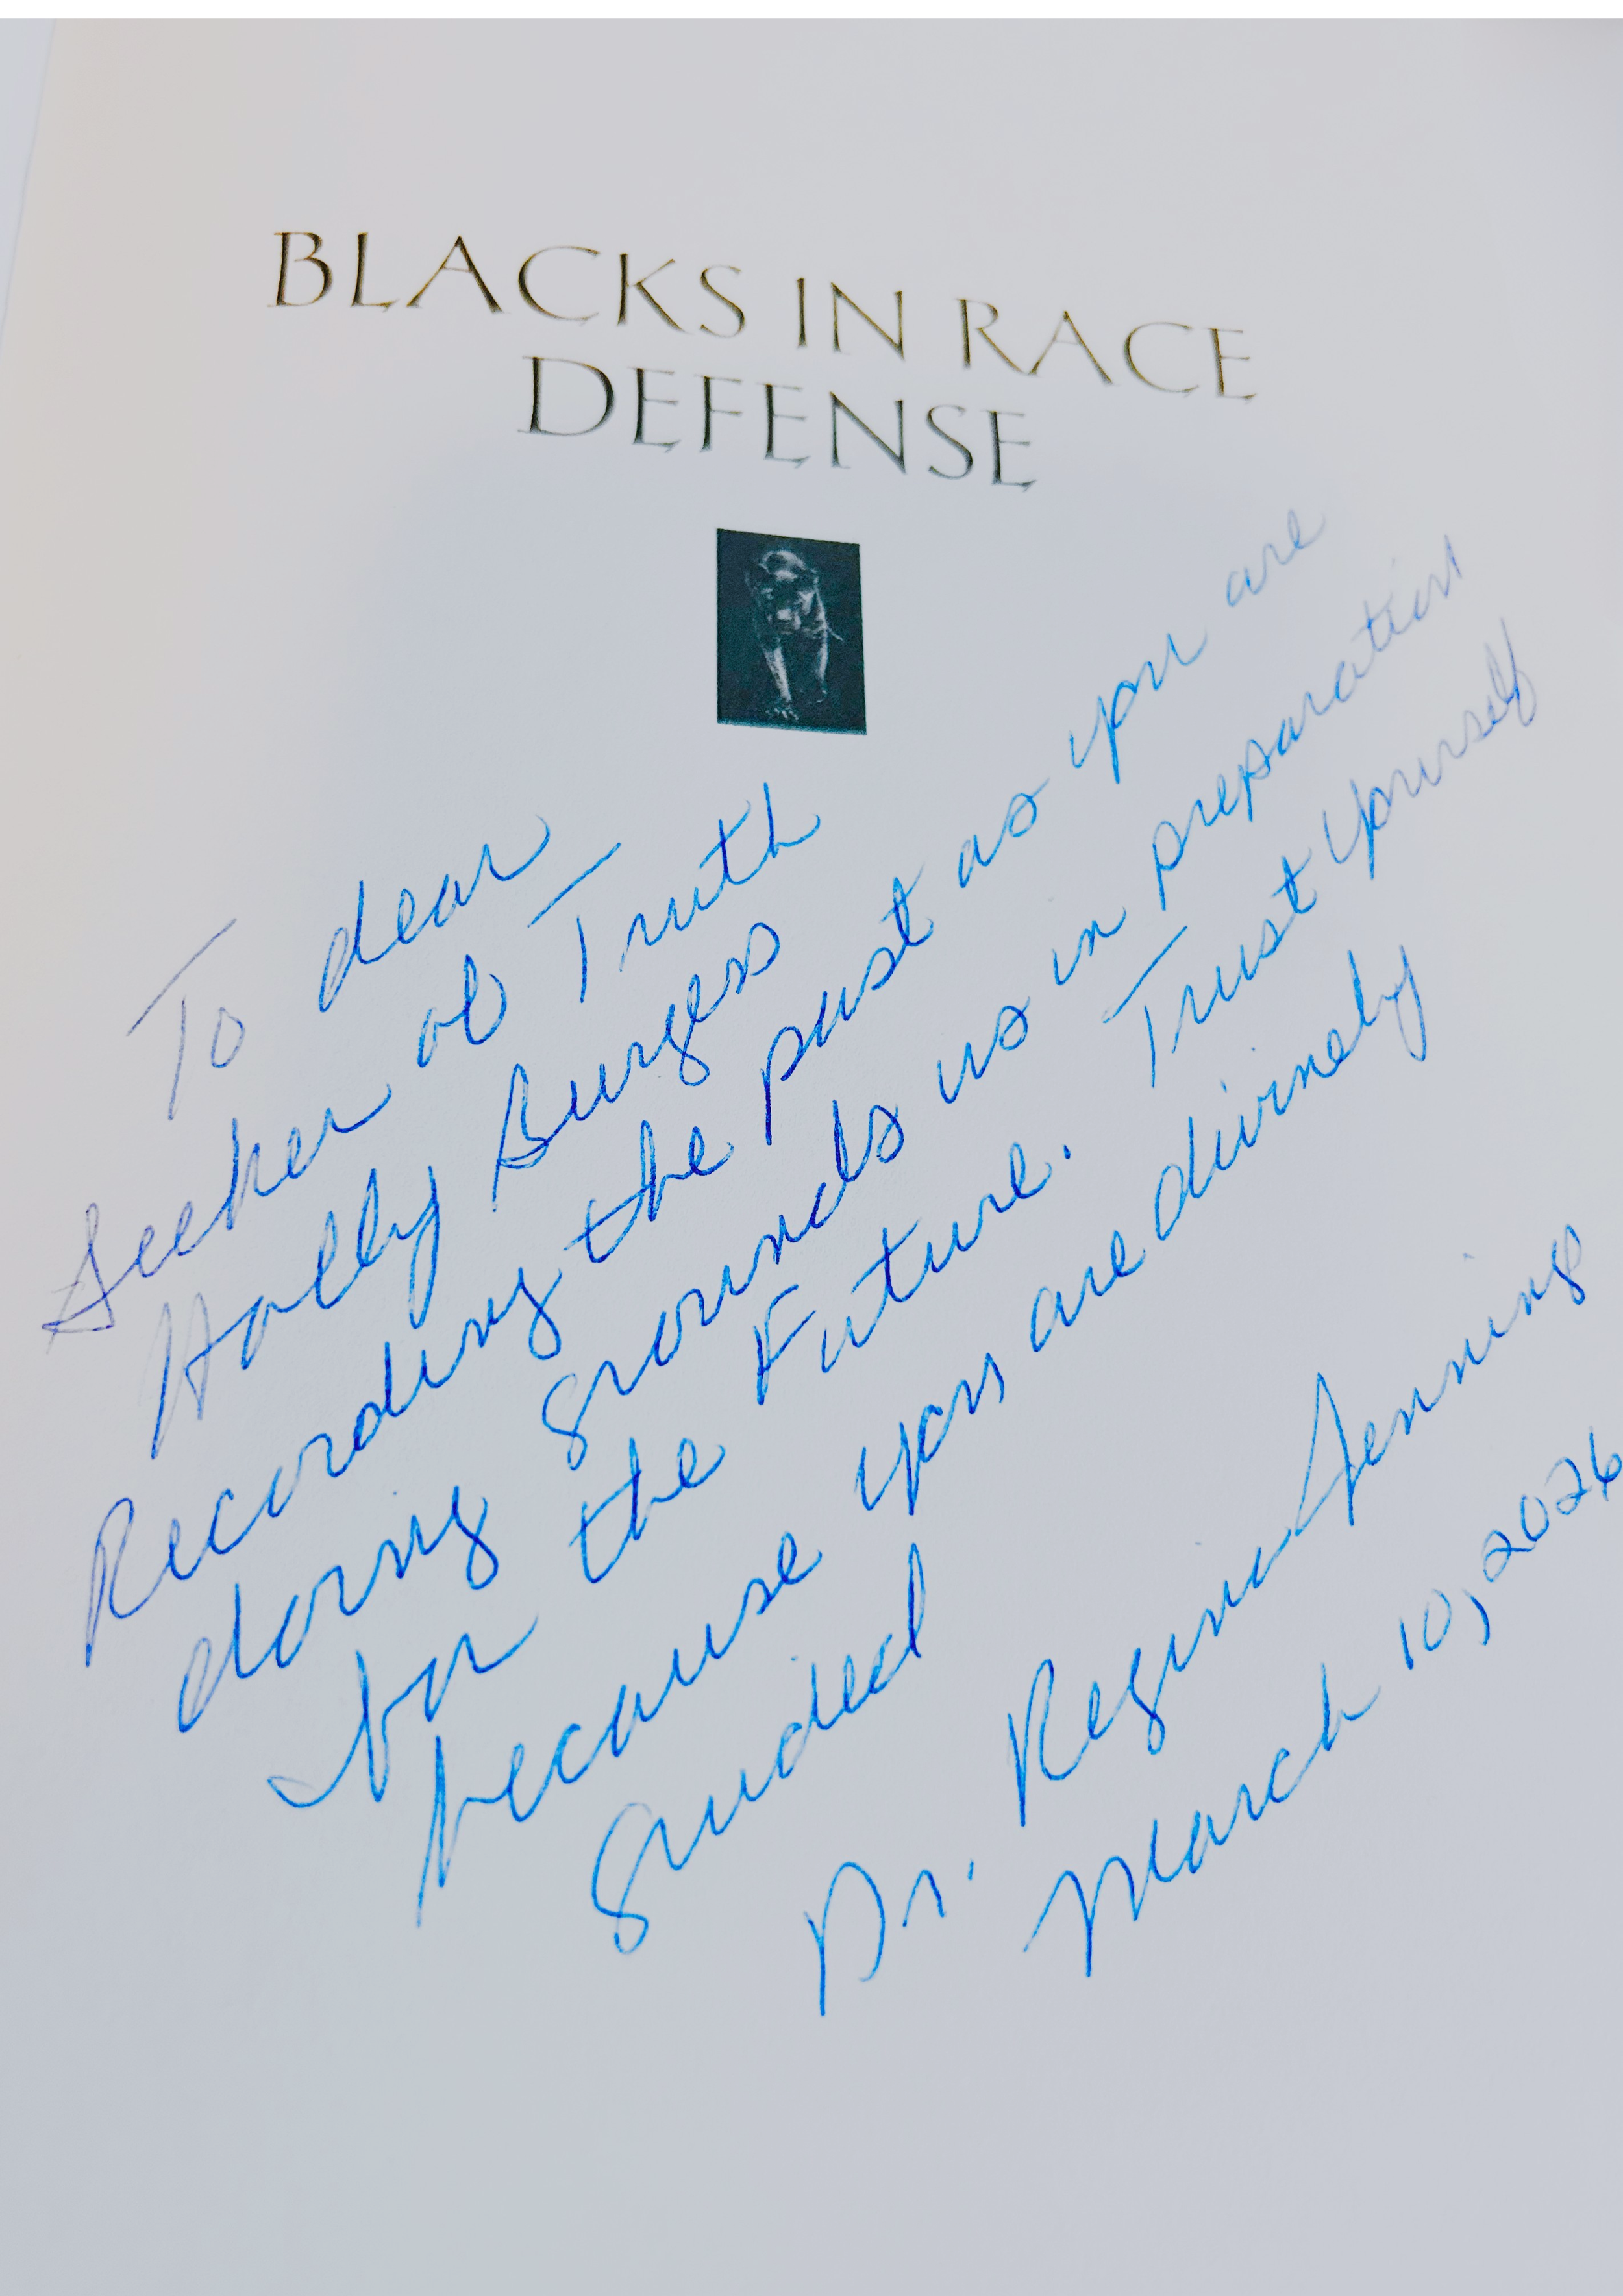 BLACKS IN RACE
DEFENSE
To dear
Seeker of Truth
Holly Burgess
Recording the past as you are
doing grounds us in preparation
for the Future. Trust yourself
because you are divinely
guided
Dr. Regina Jennings
March 10, 2026